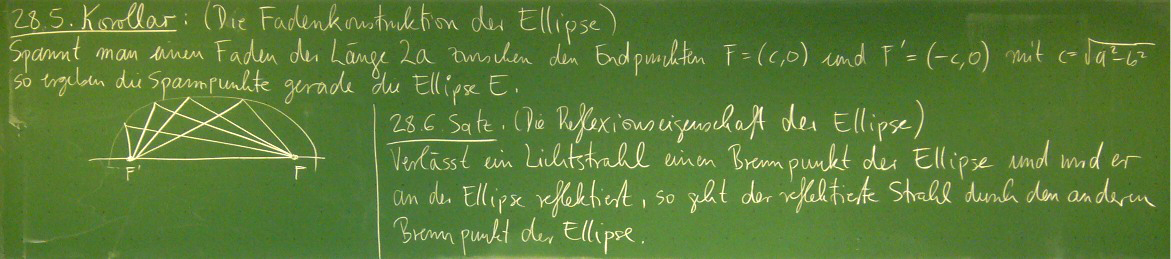 28.5. Korollar: (Die Fadenkonstruktion der Ellipse)
Spannt man einen Faden der Länge 2a zwischen den Endpunkten F=(c,0) und F'=(-c,0) mit c=√a²-b²
so ergeben die Spannpunkte gerade die Ellipse E.
F' F
28.6 Satz. (Die Reflexionseigenschaft der Ellipse)
Verlässt ein Lichtstrahl einen Brennpunkt der Ellipse und wird er
an der Ellipse reflektiert, so geht der reflektierte Strahl durch den anderen
Brennpunkt der Ellipse.